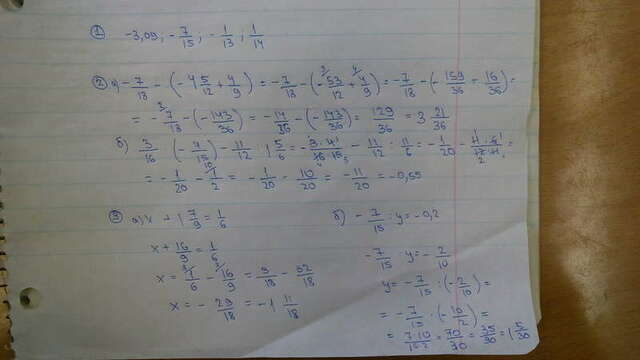 ① -3,09; -7/15; -1/13; 1/14
② а) -7/18 - (-4 5/12 + 4/9) = -7/18 - (-53/12 + 4/9) = -7/18 - (-159/36 + 16/36) =
= -7/18 - (-143/36) = -14/36 - (-143/36) = 129/36 = 3 21/36
б) 3/16 · (-4/15) - 11/12 : 1 5/6 = -3·4/16·15 - 11/12 : 11/6 = -1/20 - 11·6/12·11 =
= -1/20 - 1/2 = -1/20 - 10/20 = -11/20 = -0,55
③ а) x + 1 7/9 = 1/6
x + 16/9 = 1/6
x = 1/6 - 16/9 = 3/18 - 32/18
x = -29/18 = -1 11/18
б) -7/15 : y = -0,2
-7/15 : y = -2/10
y = -7/15 : (-2/10) =
= -7/15 · (-10/2) =
= 7·10/15·2 = 70/30 = 35/30 = 1 5/30